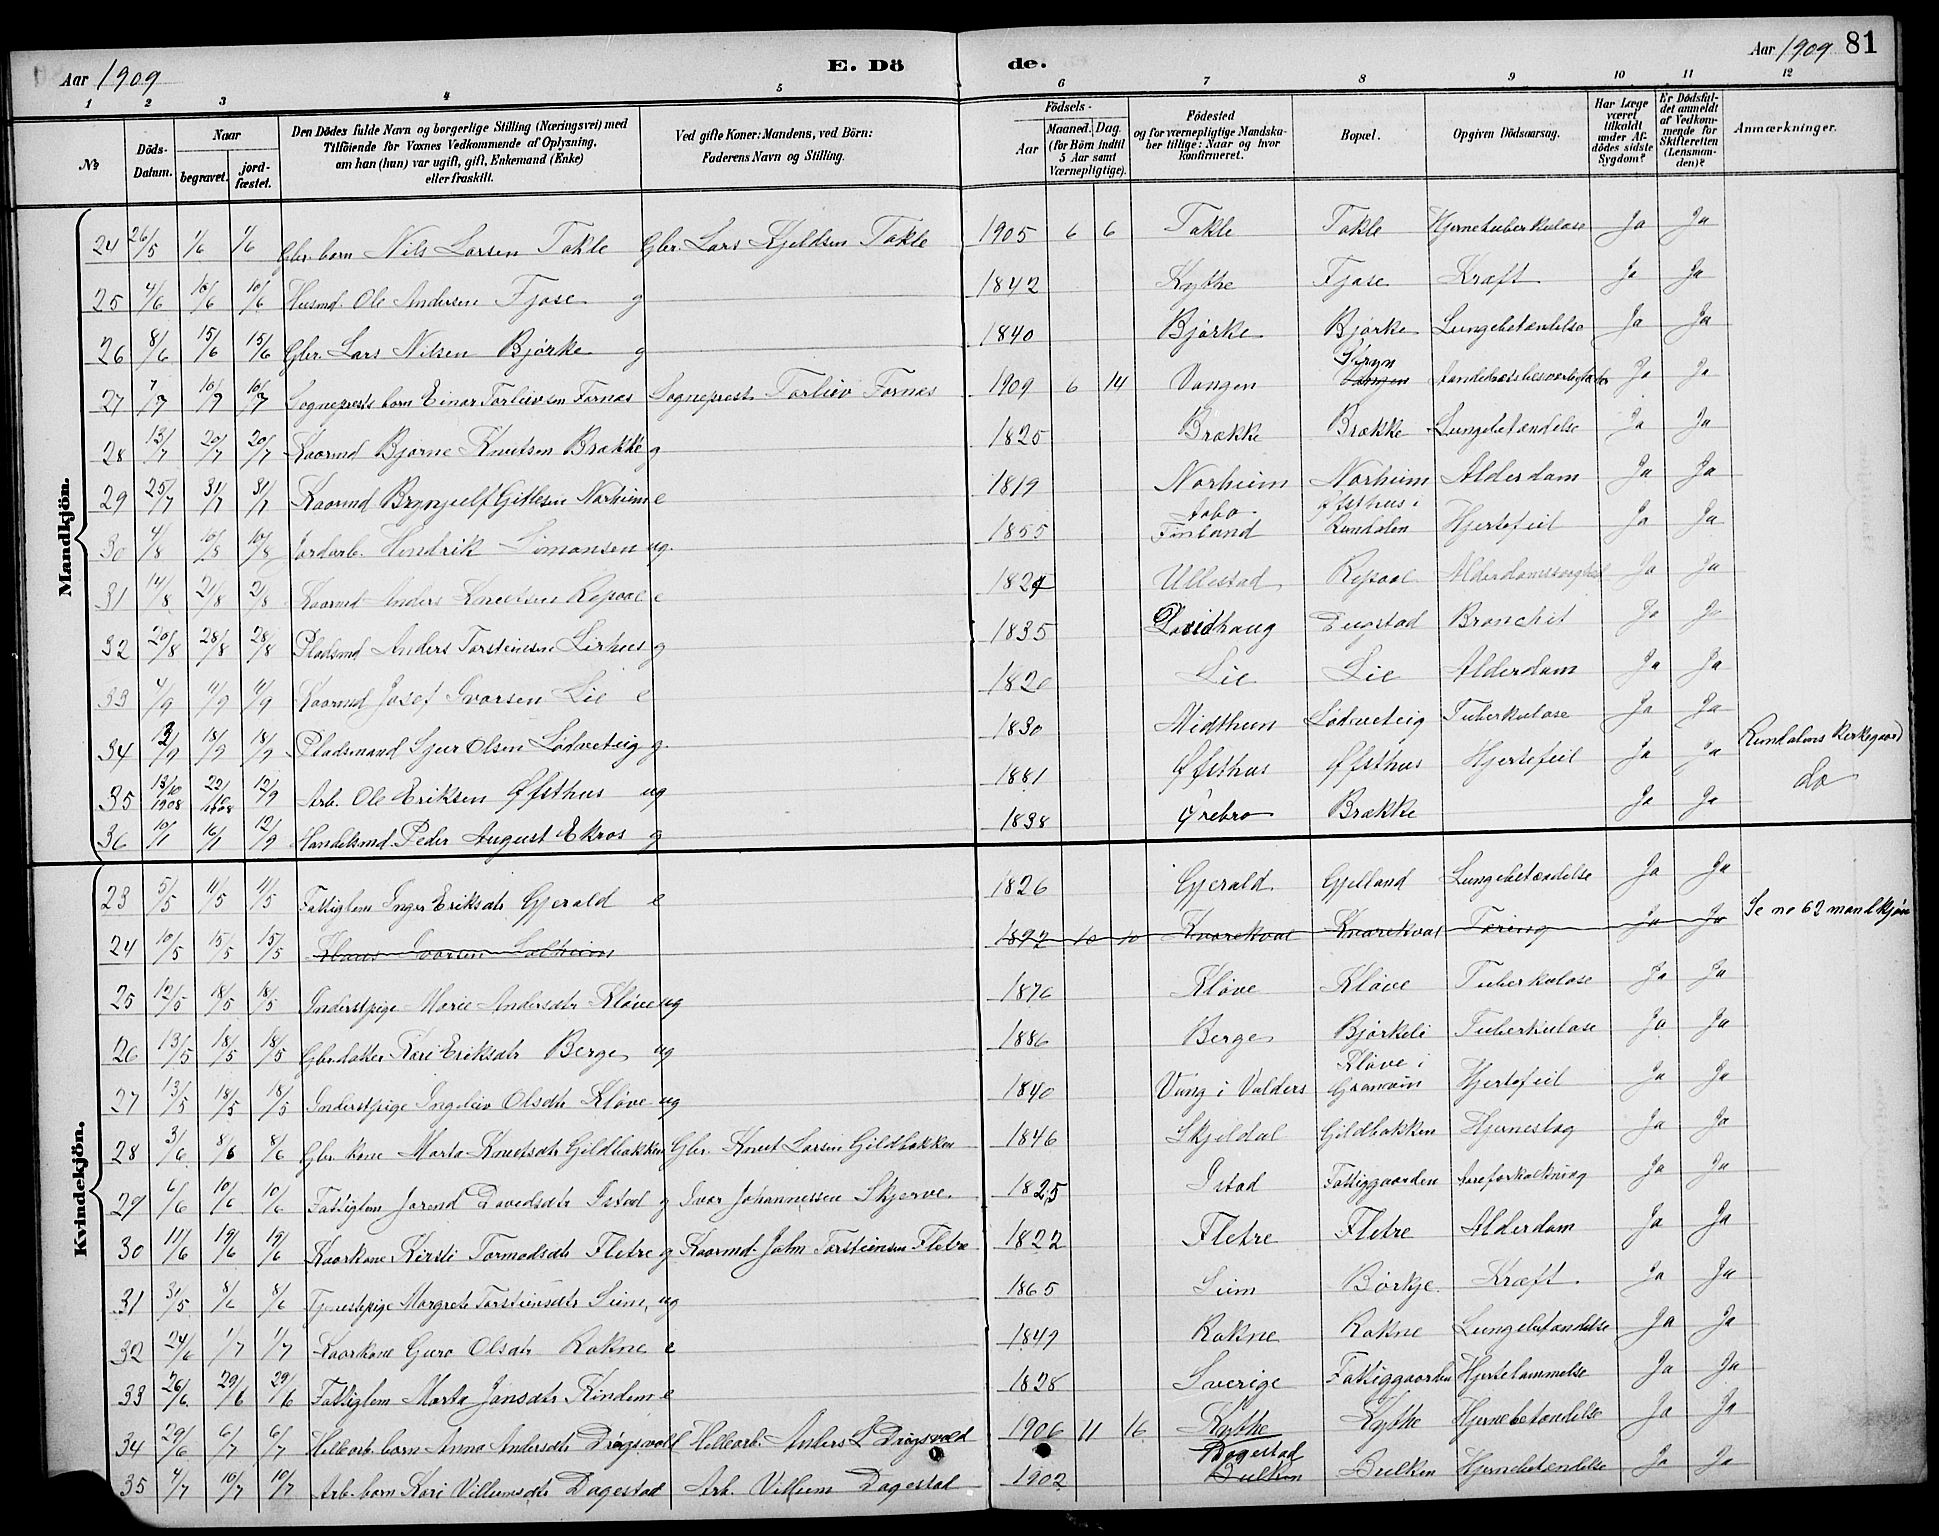 Aar 1909
E. Dö
de.
Aar 1909 81
1 2 3 4 5 6 7 8 9 10 11 12
№
Döds-Datum.
Naar
begravet.
jord-fæstet.
Den Dödes fulde Navn og borgerlige Stilling (Næringsvei) med
Tilföiende for Voxnes Vedkommende af Oplysning,
om han (hun) var ugift, gift, Enkemand (Enke)
eller fraskilt.
Ved gifte Koner: Mandens, ved Börn:
Faderens Navn og Stilling.
Födsels-
Aar
Maaned. Dag.
(for Börn indtil
5 Aar samt
Værnepligtige).
Födested
og for værnepligtige Mandska-
ber tillige: Naar og hvor
konfirmeret.
Bopæl.
Opgiven Dödsaarsag.
Har Læge
været
tilkaldt
under Af-
dödes sidste
Sygdom?
Er Dödsfal-
det anmeldt
af Vedkom-
mende for
Skifteretten
(Lensman-
den)?
Anmærkninger.
Mandkjön.
24 26/5 1/6 1/6 Gbr. barn Nils Larsen Takle Gbr. Lars Kjeldsen Takle 1905 6 6 Takle Takle Hjernetuberkulose Ja Ja
25 4/6 10/6 10/6 Husmd. Ole Andersen Fjose g 1842 Kythe Fjose Kræft Ja Ja
26 8/6 15/6 15/6 Gbr. Lars Nilsen Bjørke g 1840 Bjørke Bjørke Lungebetændelse Ja Ja
27 7/7 10/7 10/7 Sogneprests barn Einar Torleivsen Fornæs Sogneprest Torleiv Fornæs 1909 6 14 Vangen Stryn Vangen Aandedrætsbesværligheder Ja Ja
28 13/7 20/7 20/7 Kaarmd Bjørne Knutsen Brække g 1825 Brække Brække Lungebetændelse Ja Ja
29 25/7 31/7 31/7 Kaarmd Brynjulf Gitlesen Norheim e 1819 Norheim Norheim Alderdom Ja Ja
30 4/8 10/8 10/8 Jordarb. Hendrik Simonsen ug. 1855 Åbo Finland Øfsthus i Rundalen Hjertefeil Ja Ja
31 14/8 21/8 21/8 Kaarmd Anders Knutsen Repaal e 1824 Ullestad Repaal Alderdomssvaghed Ja Ja
32 20/8 28/8 28/8 Pladsmd Anders Torsteinsen Lirhus g 1835 Løvidhaug Dugstad Bronchit Ja Ja
33 4/9 11/9 11/9 Kaarmd Josef Ivarsen Lie e 1820 Lie Lie Alderdom Ja Ja
34 12/9 18/9 18/9 Pladsmand Sjur Olsen Lødveteig g. 1830 Midthun Lødveteig Tuberkulose Ja Ja
35 13/10 1908 22/10 1908 12/9 Arb. Ole Eriksen Øfsthus ug 1881 Øfsthus Øfsthus Hjertefeil Ja Ja Rundalens Kirkegaard
36 10/1 16/1 12/9 Handelsmd. Peder August Ekros g 1838 Ørebro Brække Ja Ja do
Kvindekjön.
23 5/5 11/5 11/5 Fattiglem Inger Eriksdtr Gjerald e 1826 Gjerald Gjelland Lungebetændelse Ja Ja
24 10/5 15/5 15/5 Klaus Ivarsen Solheim 1892 10 10 Kvarekval Kvarekval Tæring Ja Ja Se no 62 mandkjøn
25 12/5 18/5 18/5 Inderstpige Marie Andersdtr Kløve ug 1876 Kløve Kløve Tuberkulose Ja Ja
26 13/5 18/5 18/5 Gbr. datter Kari Eriksdtr Berge ug 1886 Berge Bjørkeli Tuberkulose Ja Ja
27 13/5 18/5 18/5 Inderstpige Ingeleiv Olsdtr Kløve ug 1840 Vang i Valders Kløve i Granvin Hjertefeil Ja Ja
28 3/6 8/6 8/6 Gbr. kone Marta Knutsdtr Gildbakken Gbr. Knut Larsen Gildbakken 1846 Skjeldal Gildbakken Hjerneslag Ja Ja
29 6/6 10/6 10/6 Fattiglem Jorend Davidsdtr Istad g Ivar Johannessen Skjerve. 1825 Istad Fattiggaarden Aareforkalkning Ja Ja
30 11/6 19/6 19/6 Kaarkone Kirsti Tormodsdtr Fletre g Kaarmd. John Torsteinsen Fletre 1822 Fletre Fletre Alderdom Ja Ja
31 31/5 8/6 8/6 Tjenestepige Margrete Torsteinsdtr Sim, ug 1865 Sim Børkje Kræft. Ja Ja
32 24/6 1/7 1/7 Kaarkone Guro Olsdtr Rokne e 1849 Rokne Rokne Lungebetændelse Ja Ja
33 26/6 29/6 29/6 Fattiglem Marta Jansdtr Rindem e 1828 Sverige Fattiggaarden Hjertelammelse Ja Ja
34 29/6 6/7 6/7 Hellearb. barn Anna Andersdtr Drøgsvold Hellearb. Anders L Drøgsvold 1906 11 16 Kythe Kythe Hjernebetændelse Ja Ja
35 4/7 10/7 10/7 Arb. barn Kari Villumsdtr Dagestad Arb. Villum Dagestad 1902 Dagestad Bulken Bulken Hjernebetændelse Ja Ja